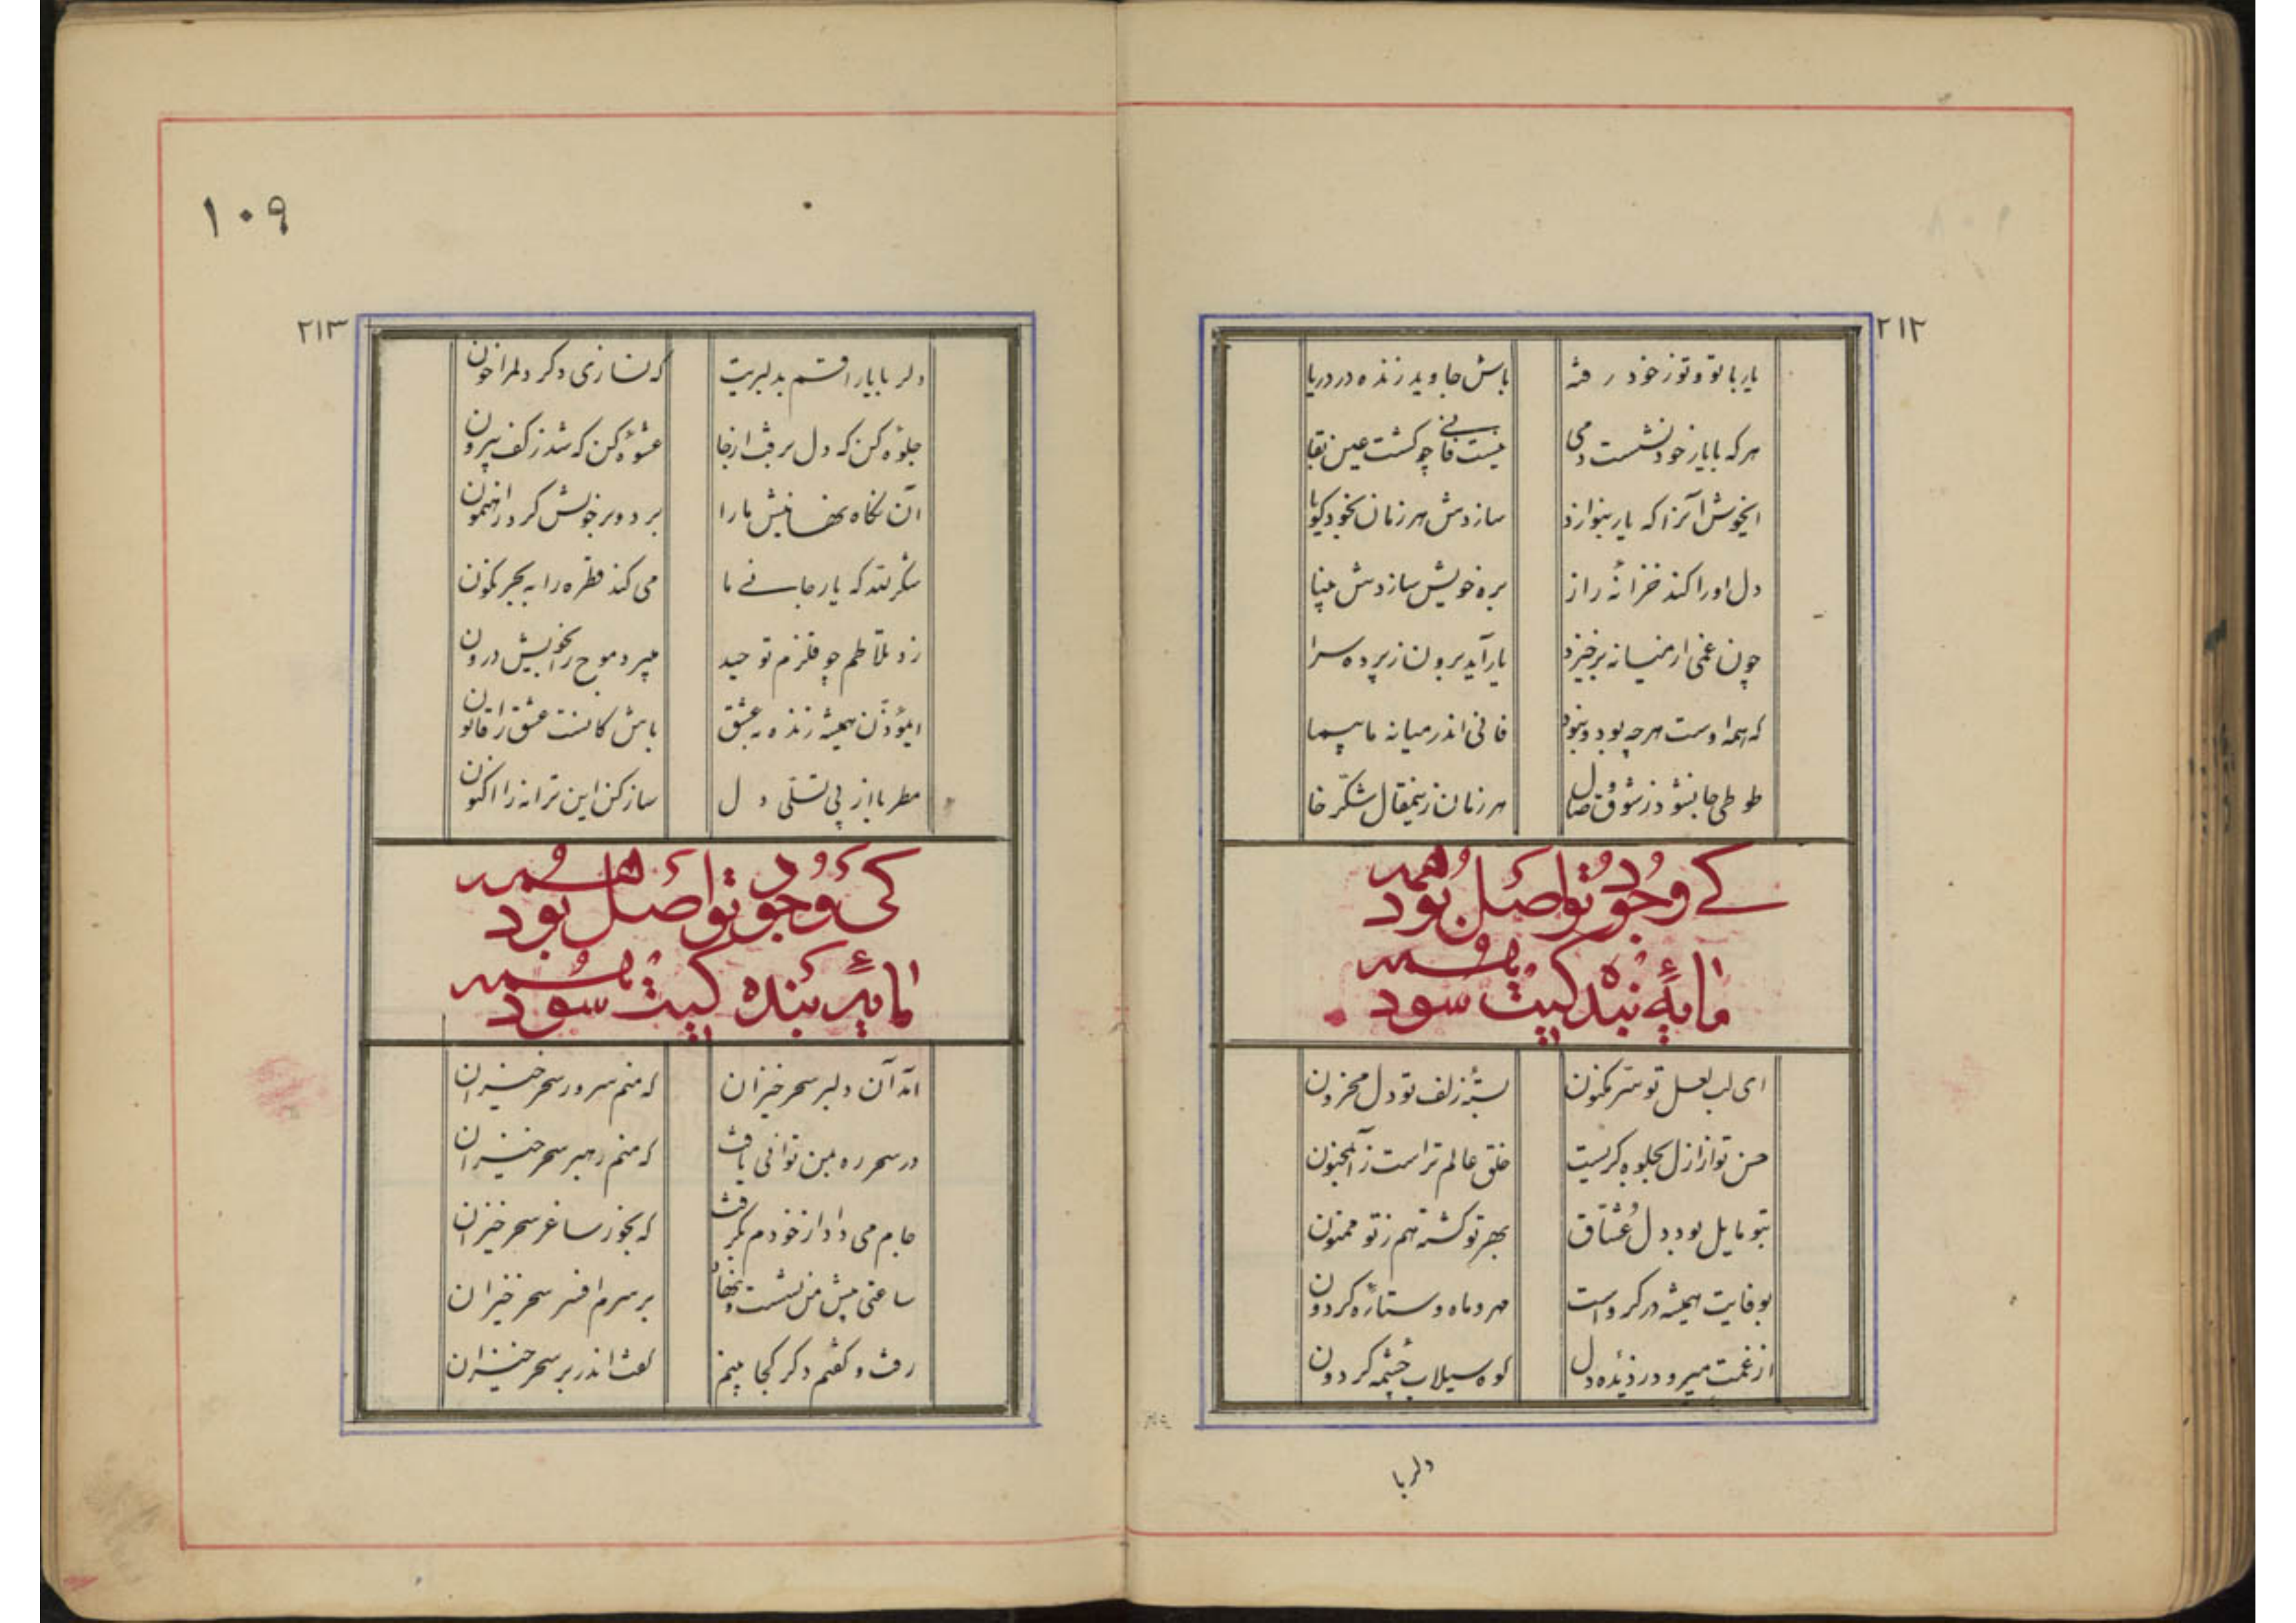 ۲۱۲
یار با تو و تو ز خود رفته باش جاوید زنده در دریا
هرکه با یار خود نشست دمی نیست فانی چو کشت عین بقا
ایخوش آنرا که یار بنوازد سازدش هر زمان بخود کویا
دل او را کند خزانهٔ راز بره خویش سازدش بینا
چون غنی از میانه برخیزد یار آید برون ز پرده سرا
که همه اوست هر چه بود و نبود فانی اندر میانه ما سیما
طوطی جا بشنو د ز شوق وصال هر زمان زینمقال شکّر خا
کے وجود تو اصل بود همه
مایهٔ بندکیت سود همه
ای لب لعل تو سر مکنون بستهٔ زلف تو دل محزون
حسن تو از ازل بجلوه کریست خلق عالم تراست زآن مجنون
بتو مایل بود دل عشّاق بهر تو کشته هم ز تو ممنون
بوفایت همیشه در کرو است مهر و ماه و ستارهٔ کردون
از غمت میرود ز دیدهٔ دل کوه سیلاب چشمه کردون
دلربا
۱۰۹
۲۱۳
دلربا یارا قسم بدلبریت که نسازی دکر دلمرا خون
جلوهٔ کن که دل برفت از جا عشوهٔ کن که شد ز کف بیرون
آن نکاه نهانیش ما را برد و بر خویش کرد راهنمون
شکر لله که یار جانے ما می کند قطره را به بحر کنون
زد تلاطم چو قلزم توحید میبرد موج را بخویش درون
ایمؤذّن همیشه زنده به عشق باش کانست عشق را قانون
مطربا از پی تسلّی دل ساز کن این ترانه را اکنون
کی وجود تو اصل بود همه
مایهٔ بنده کیت سود همه
آمد آن دلبر سحر خیزان که منم سرور سحر خیزان
در سحر ره بمن توانی یافت که منم رهبر سحر خیزان
جام می داد از خودم بکرفت که بخور ساغر سحر خیزان
ساعتی پیش من نشست و نهاد بر سرم افسر سحر خیزان
رفت و کفتم دکر کجا بینم کفت اندر بر سحر خیزان